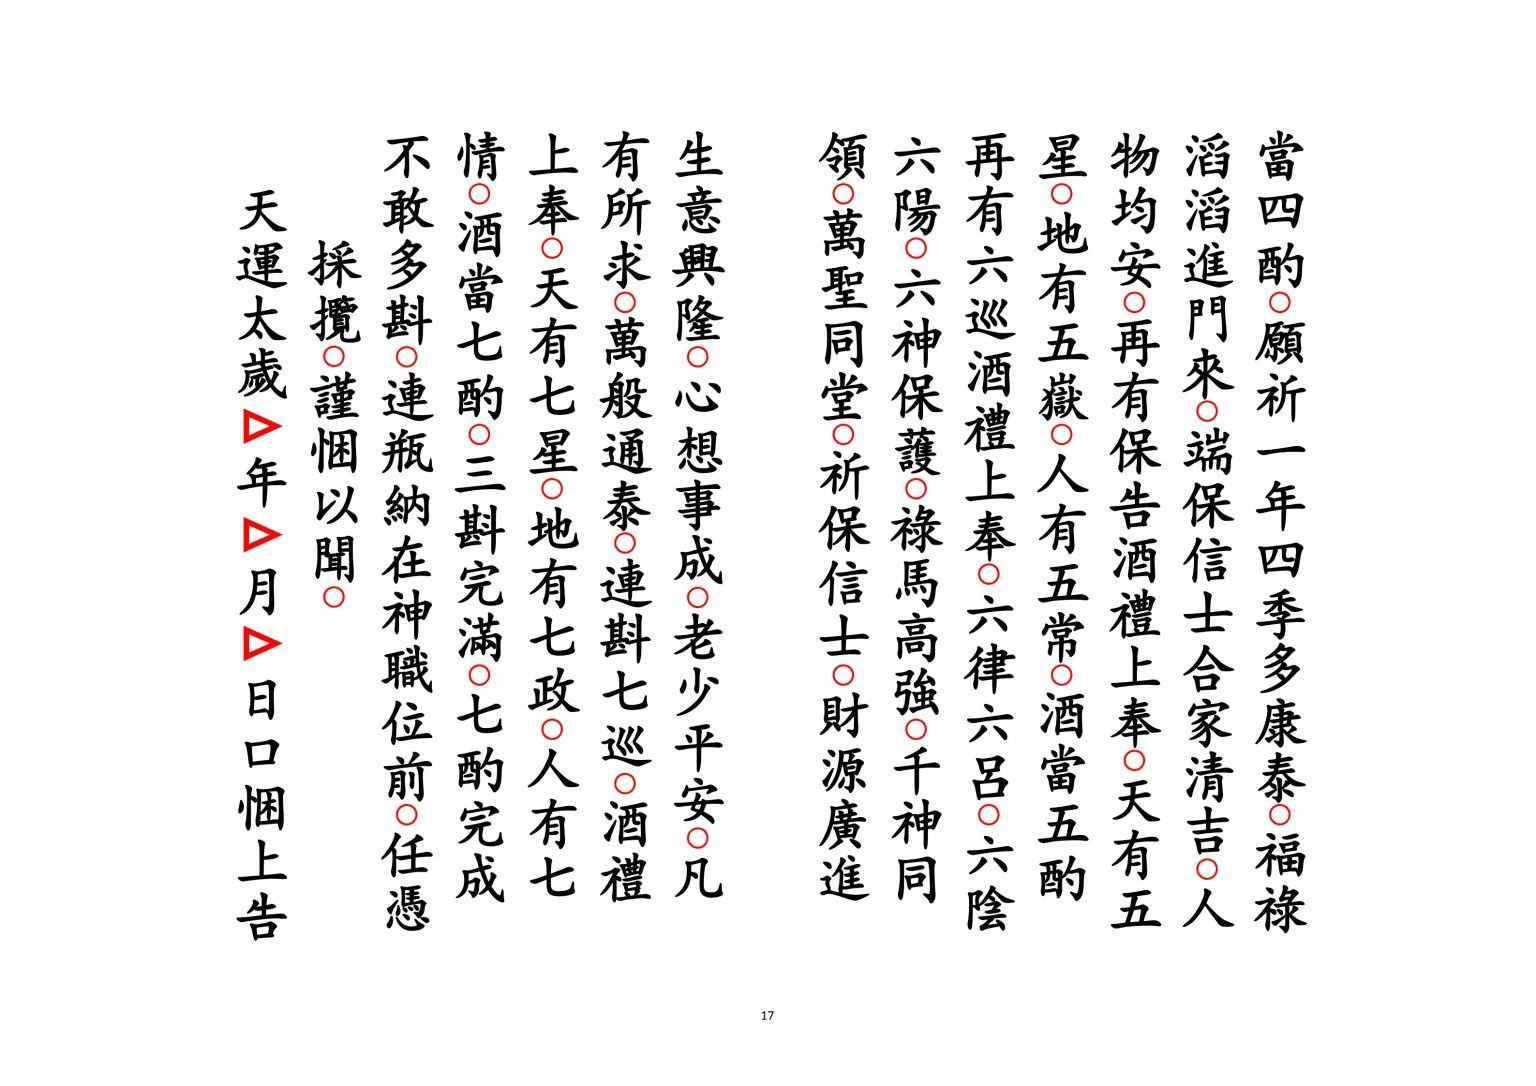 當四酌○願祈一年四季多康泰○福祿
滔滔進門來○端保信士合家清吉○人
物均安○再有保告酒禮上奉○天有五
星○地有五嶽○人有五常○酒當五酌
再有六巡酒禮上奉○六律六呂○六陰
六陽○六神保護○祿馬高強○千神同
領○萬聖同堂○祈保信士○財源廣進
生意興隆○心想事成○老少平安○凡
有所求○萬般通泰○連斟七巡○酒禮
上奉○天有七星○地有七政○人有七
情○酒當七酌○三斟完滿○七酌完成
不敢多斟○連瓶納在神職位前○任憑
採攬○謹悃以聞○
天運太歲▷年▷月▷日口悃上告
17